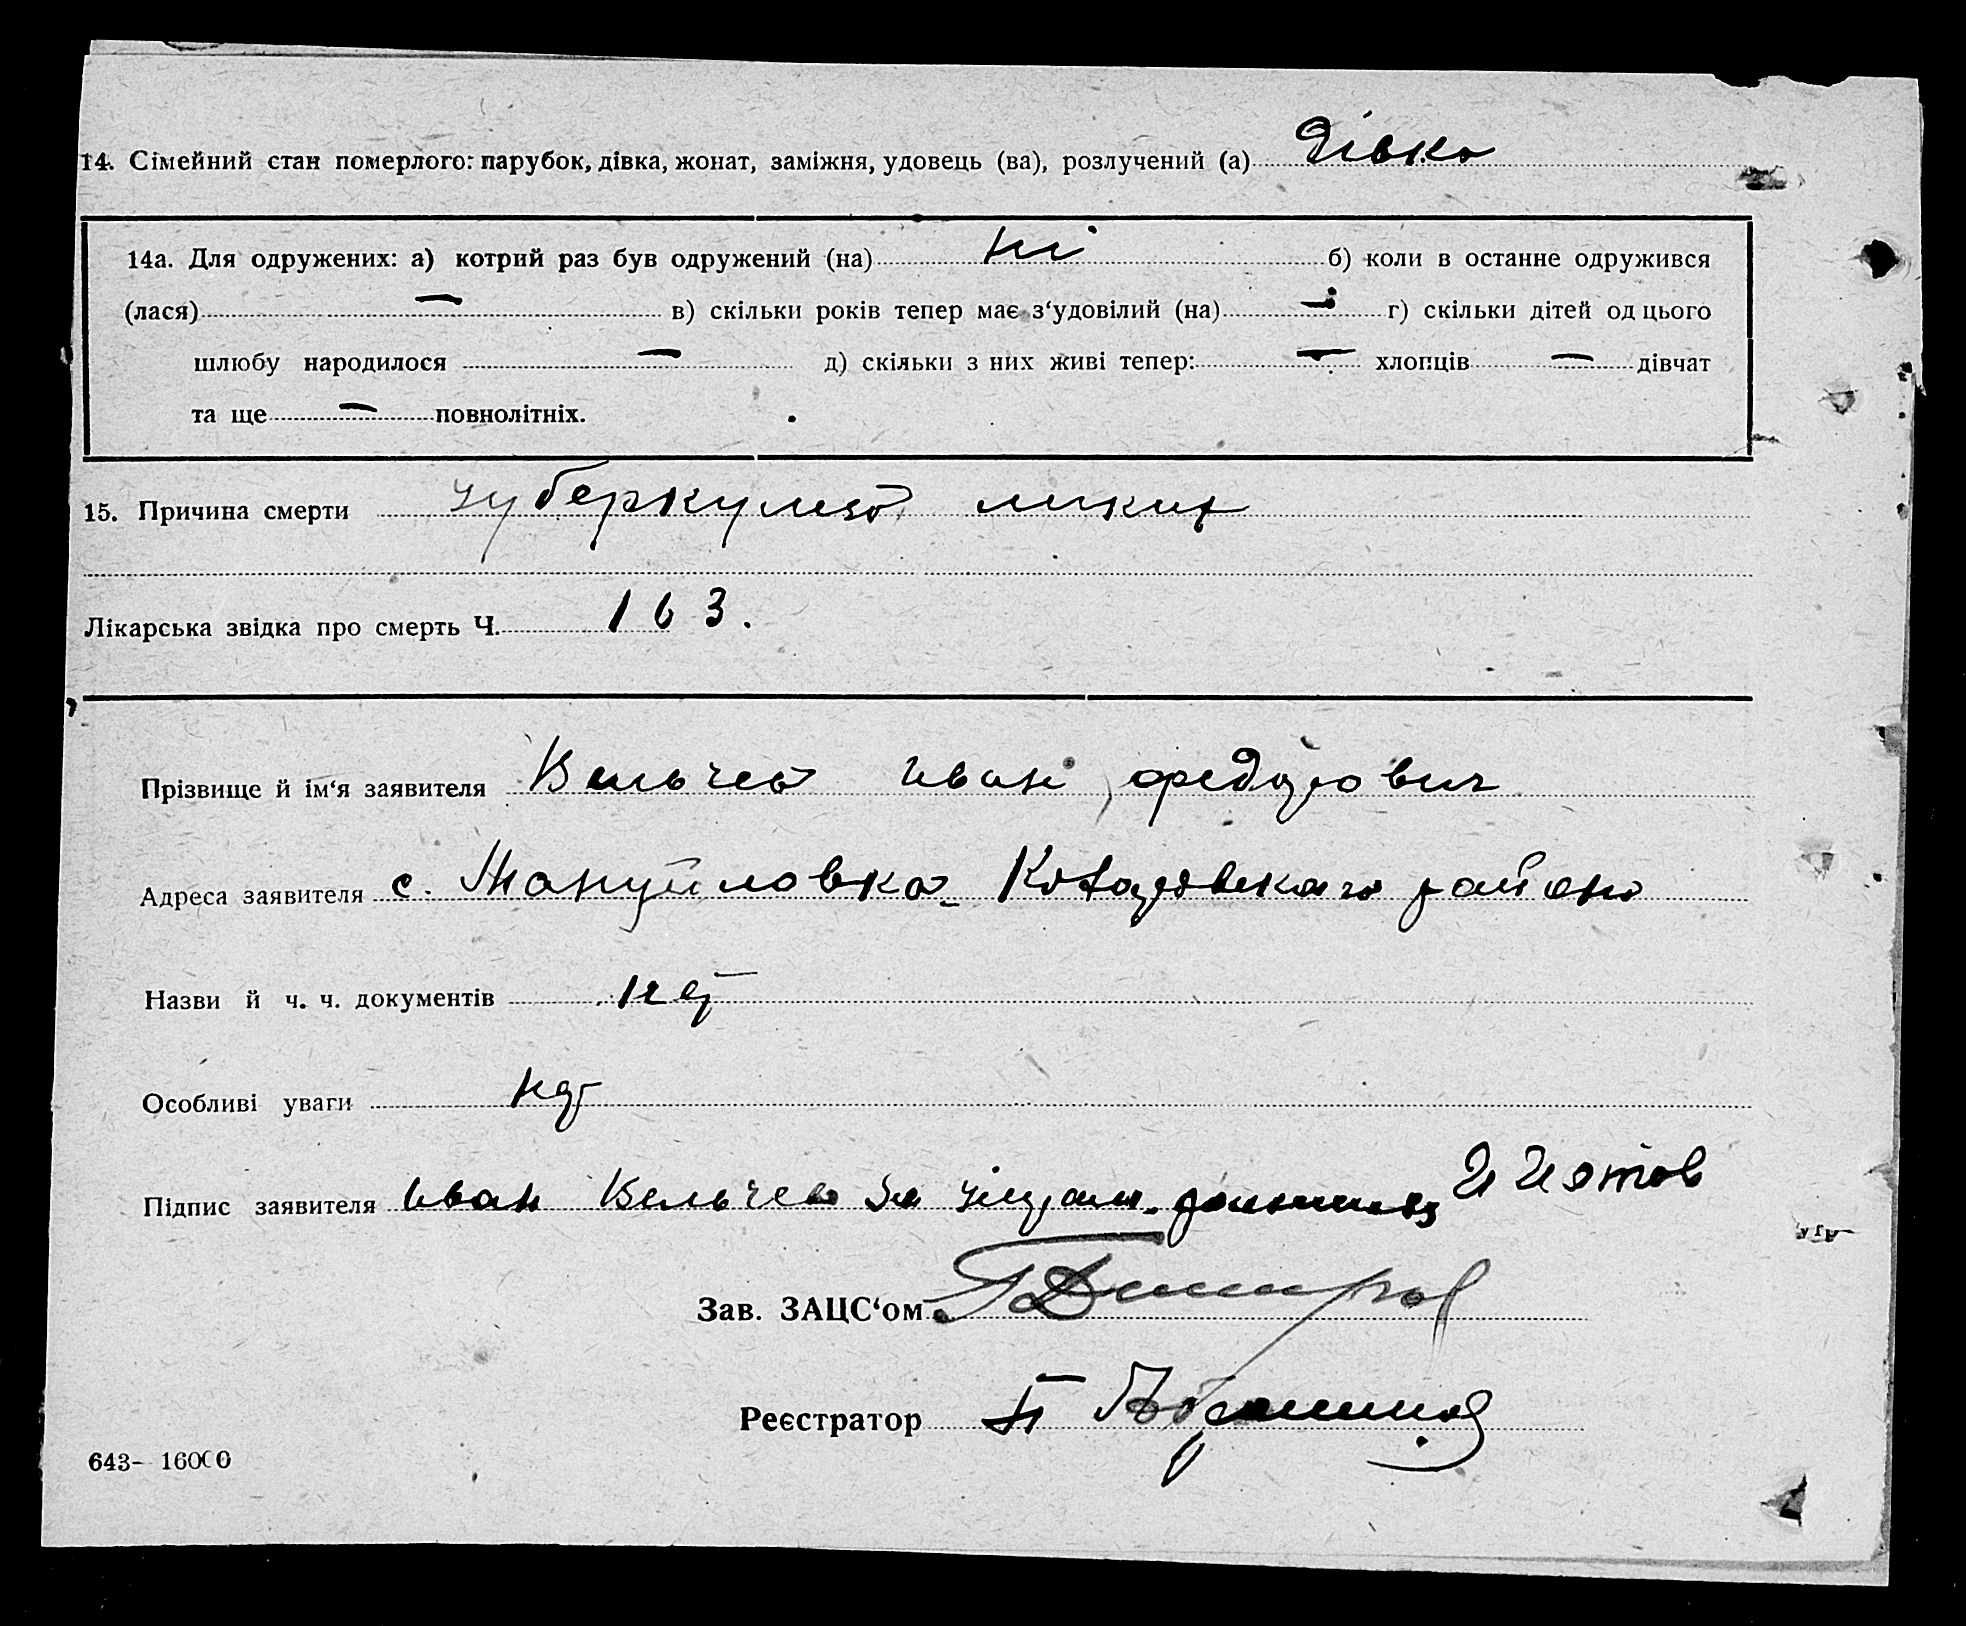 14. Сімейний стан померлого: парубок, дівка, жонат, заміжня, удовець (ва), розлучений (а) дівка
14а. Для одружених: а) котрий раз був одружений (на) ні б) коли в останне одружився
(лася) — в) скільки років тепер має з‘удовілий (на) — г) скільки дітей од цього
шлюбу народилося — д) скільки з них живі тепер: — хлопців — дівчат
та ще — повнолітніх.
15. Причина смерти туберкулез
Лікарська звідка про смерть Ч. 163.
Прізвище й ім‘я заявителя Вельчев Иван Федорович
Адреса заявителя с. Мануйловка района
Назви й ч. ч. документів нет
Особливі уваги нет
Підпис заявителя Иван Вельчев за
Зав. ЗАЦС‘ом Г Димитров
Реєстратор П
643- 16000